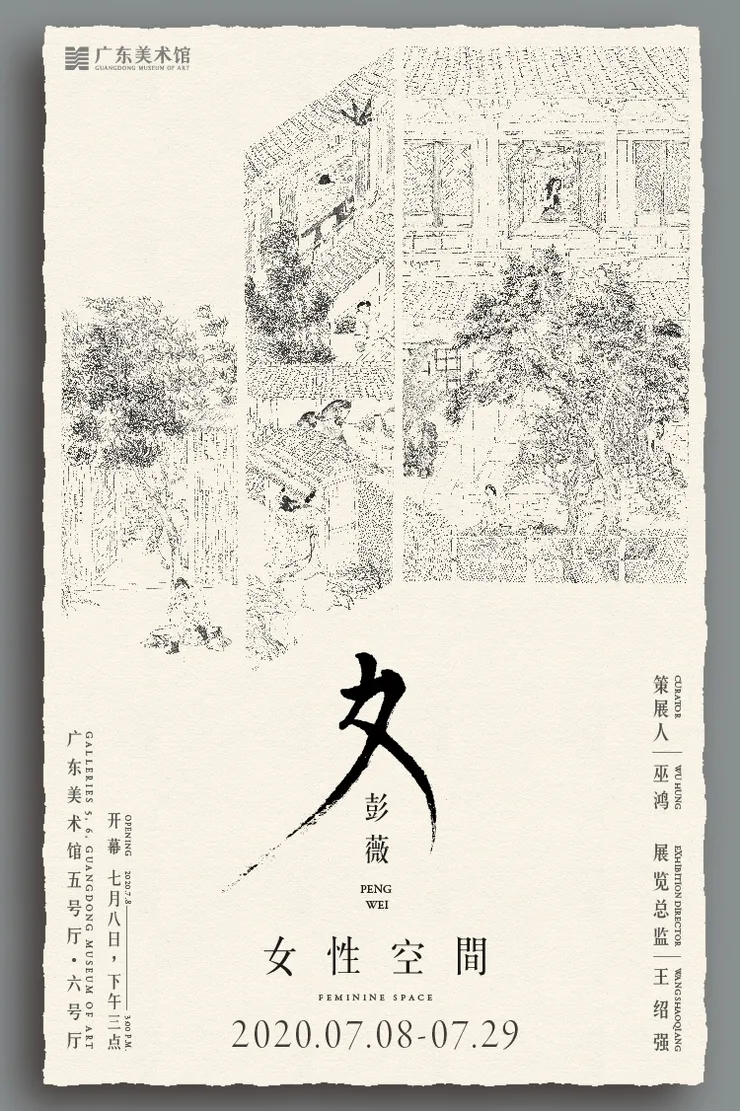 广东美术馆
GUANGDONG MUSEUM OF ART
彭薇
PENG
WEI
女性空間
FEMININE SPACE
2020.07.08-07.29
策展人 巫鸿
CURATOR WU HUNG
展览总监 王绍强
EXHIBITION DIRECTOR WANG SHAOQIANG
开幕 七月八日，下午三点
OPENING 2020.7.8 3:00 P.M.
广东美术馆五号厅·六号厅
GALLERIES 5, 6, GUANGDONG MUSEUM OF ART